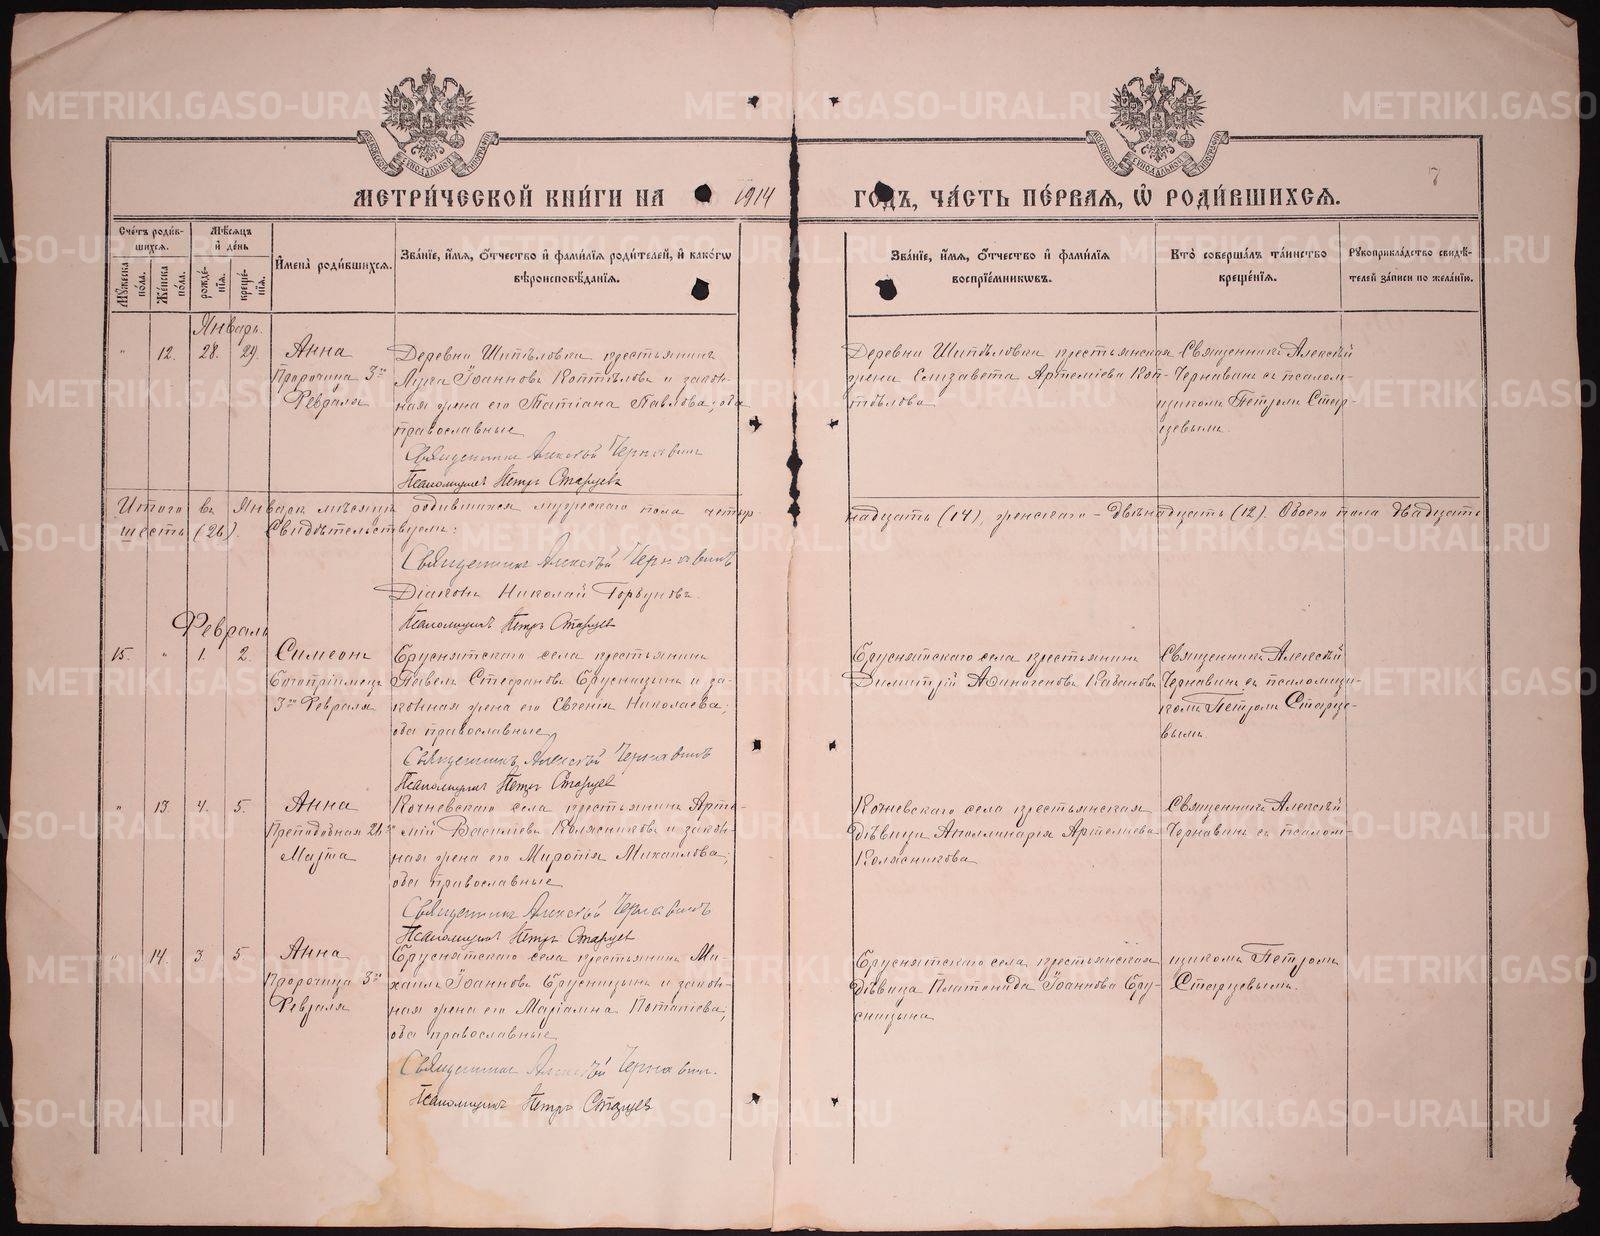 МЕТРИ́ЧЕСКОЙ КНИ́ГИ НА 1914 ГОДЪ, ЧА́СТЬ ПЕ́РВАѦ, Ѽ РОДИ́ВШИХСѦ.
7
Сче́тъ роди́в-
шихсѧ.
Мѣ́сѧцъ
и҆ де́нь
Му́жеска
по́ла.
Же́нска
по́ла.
рожде́-
нїѧ.
креще́-
нїѧ.
И҆мена̀ роди́вшихсѧ.
Зва́нїе, и҆́мѧ, ѻ҆́тчество и҆ фами́лїѧ роди́телей, и҆ како́гѡ
вѣроисповѣ́данїѧ.
Зва́нїе, и҆́мѧ, ѻ҆́тчество и҆ фами́лїѧ
воспрїе́мникѡвъ.
Кто̀ соверша́лъ та́инство
креще́нїѧ.
Рꙋкоприкла́дство свидѣ́-
телей за́писи по жела́нїю.
Январь.
" 12. 28. 29.
Анна
Пророчица 3го
Февраля
Деревни Шипѣловки крестьянинъ
Лука Іоанновъ Коптѣловъ и закон-
ная жена его Татіана Павлова; оба
православные
Священникъ Алексѣй Чернавинъ
Псаломщикъ Петръ Старцев
Деревни Шипѣловки крестьянская
жена Елизавета Артеміева Коп-
тѣлова
Священникъ Алексѣй
Чернавинъ съ псалом-
щикомъ Петромъ Стар-
цевымъ.
Итого въ Январѣ мѣсяцѣ родившихся мужескаго пола четыр-
надцать (14), женскаго – двѣнадцать (12). Обоего пола двадцать
шесть (26). Свидѣтельствуемъ:
Священникъ Алексѣй Чернавинъ
Діаконъ Николай Горбуновъ.
Псаломщикъ Петръ Старцев
Февраль
15. " 1. 2.
Симеонъ
Богопріимецъ
3го Февраля
Бруснятскаго села крестьянинъ
Павелъ Стефановъ Брусницынъ и за-
конная жена его Евгенія Николаева;
оба православные
Священникъ Алексѣй Чернавинъ
Псаломщикъ Петръ Старцев
Бруснятскаго села крестьянинъ
Димитрій Аѳиногеновъ Кабановъ
Священникъ Алексѣй
Чернавинъ съ псаломщи-
комъ Петромъ Старце-
вымъ.
" 13. 4. 5.
Анна
Преподобная 21го
Марта
Кочневскаго села крестьянинъ Арте-
мій Василіевъ Колясниковъ и закон-
ная жена его Миропія Михаилова;
оба православные
Священникъ Алексѣй Чернавинъ
Псаломщикъ Петръ Старцев
Кочневскаго села крестьянская
дѣвица Аполлинарія Артеміева
Колясникова
Священникъ Алексѣй
Чернавинъ съ псалом-
" 14. 3. 5.
Анна
Пророчица 3го
Февраля
Бруснятскаго села крестьянинъ Ми-
хаилъ Іоанновъ Брусницынъ и закон-
ная жена его Маріамна Потапіева;
оба православные
Священникъ Алексѣй Чернавин.
Псаломщикъ Петръ Старцев
Бруснятскаго села крестьянская
дѣвица Платонида Іоаннова Бру-
сницына
щикомъ Петромъ
Старцевымъ.
METRIKI.GASO-URAL.RU